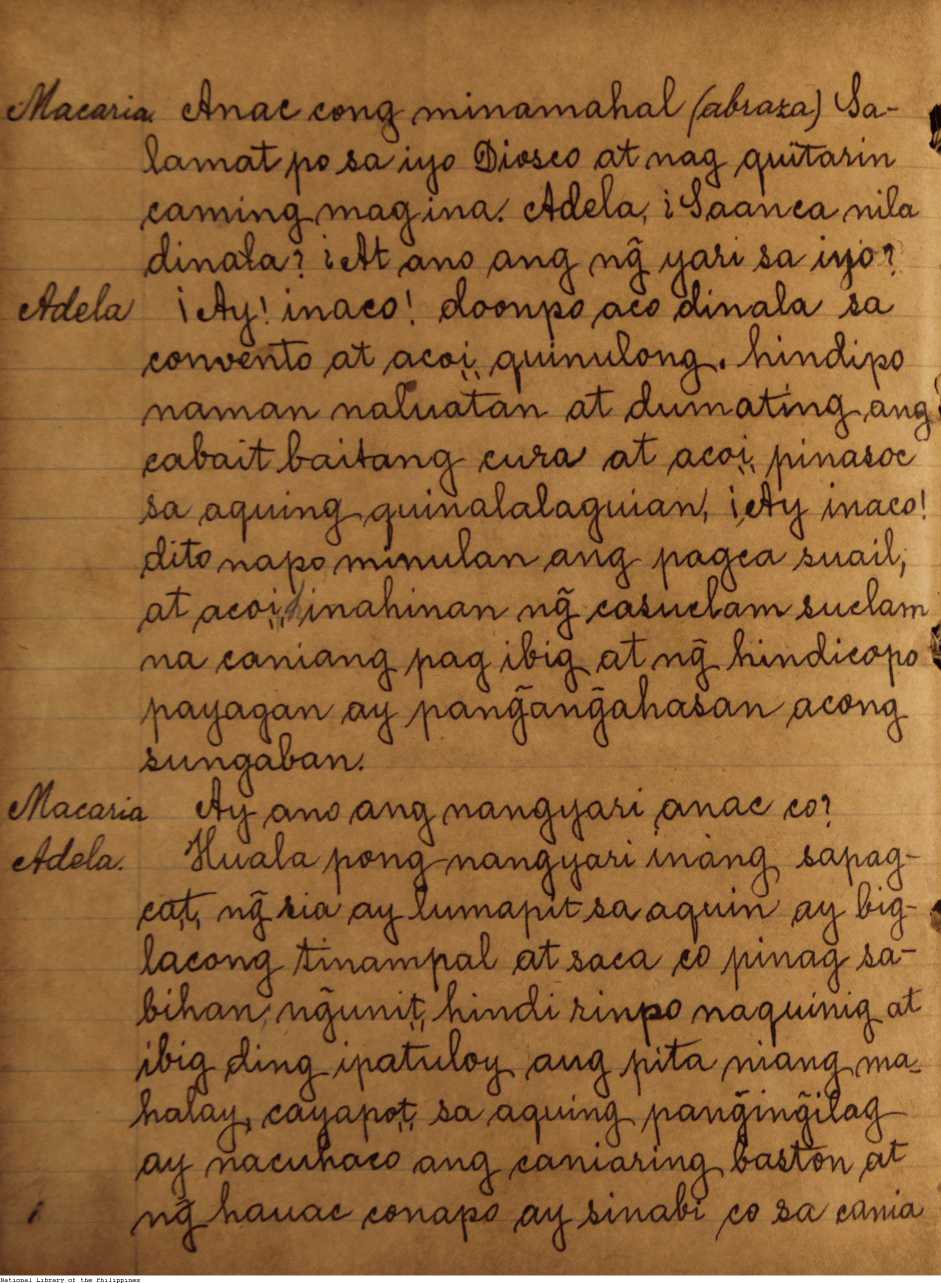 Macaria. Anac cong minamahal (abraza) Sa-
lamat po sa iyo Diosco at nag quitarin
caming mag ina. Adela, ¡Saanca nila
dinala? ¡At ano ang ng̃ yari sa iyo?
Adela ¡Ay! inaco! doonpo aco dinala sa
convento at acoi,, quinulong. hindipo
naman naluatan at dumating ang
cabait baitang cura at acoi,, pinasoc
sa aquing quinalalaguian, ¡Ay inaco!
dito napo minulan ang pagca suail,
at acoi,, inahinan ng̃ casuclam suclam
na caniang pag ibig at ng̃ hindicopo
payagan ay pang̃ang̃ahasan acong
sungaban.
Macaria Ay ano ang nangyari anac co?
Adela. Huala pong nangyari inang, sapag-
cat,, ng̃ sia ay lumapit sa aquin ay big-
lacong tinampal at saca co pinag sa-
bihan, ng̃unit,, hindi rinpo naquinig at
ibig ding ipatuloy ang pita niang ma-
halay, cayapot,, sa aquing pang̃ing̃ilag
ay nacuhaco ang caniaring baston at
ng̃ hauac conapo ay sinabi co sa cania
National Library of the Philippines